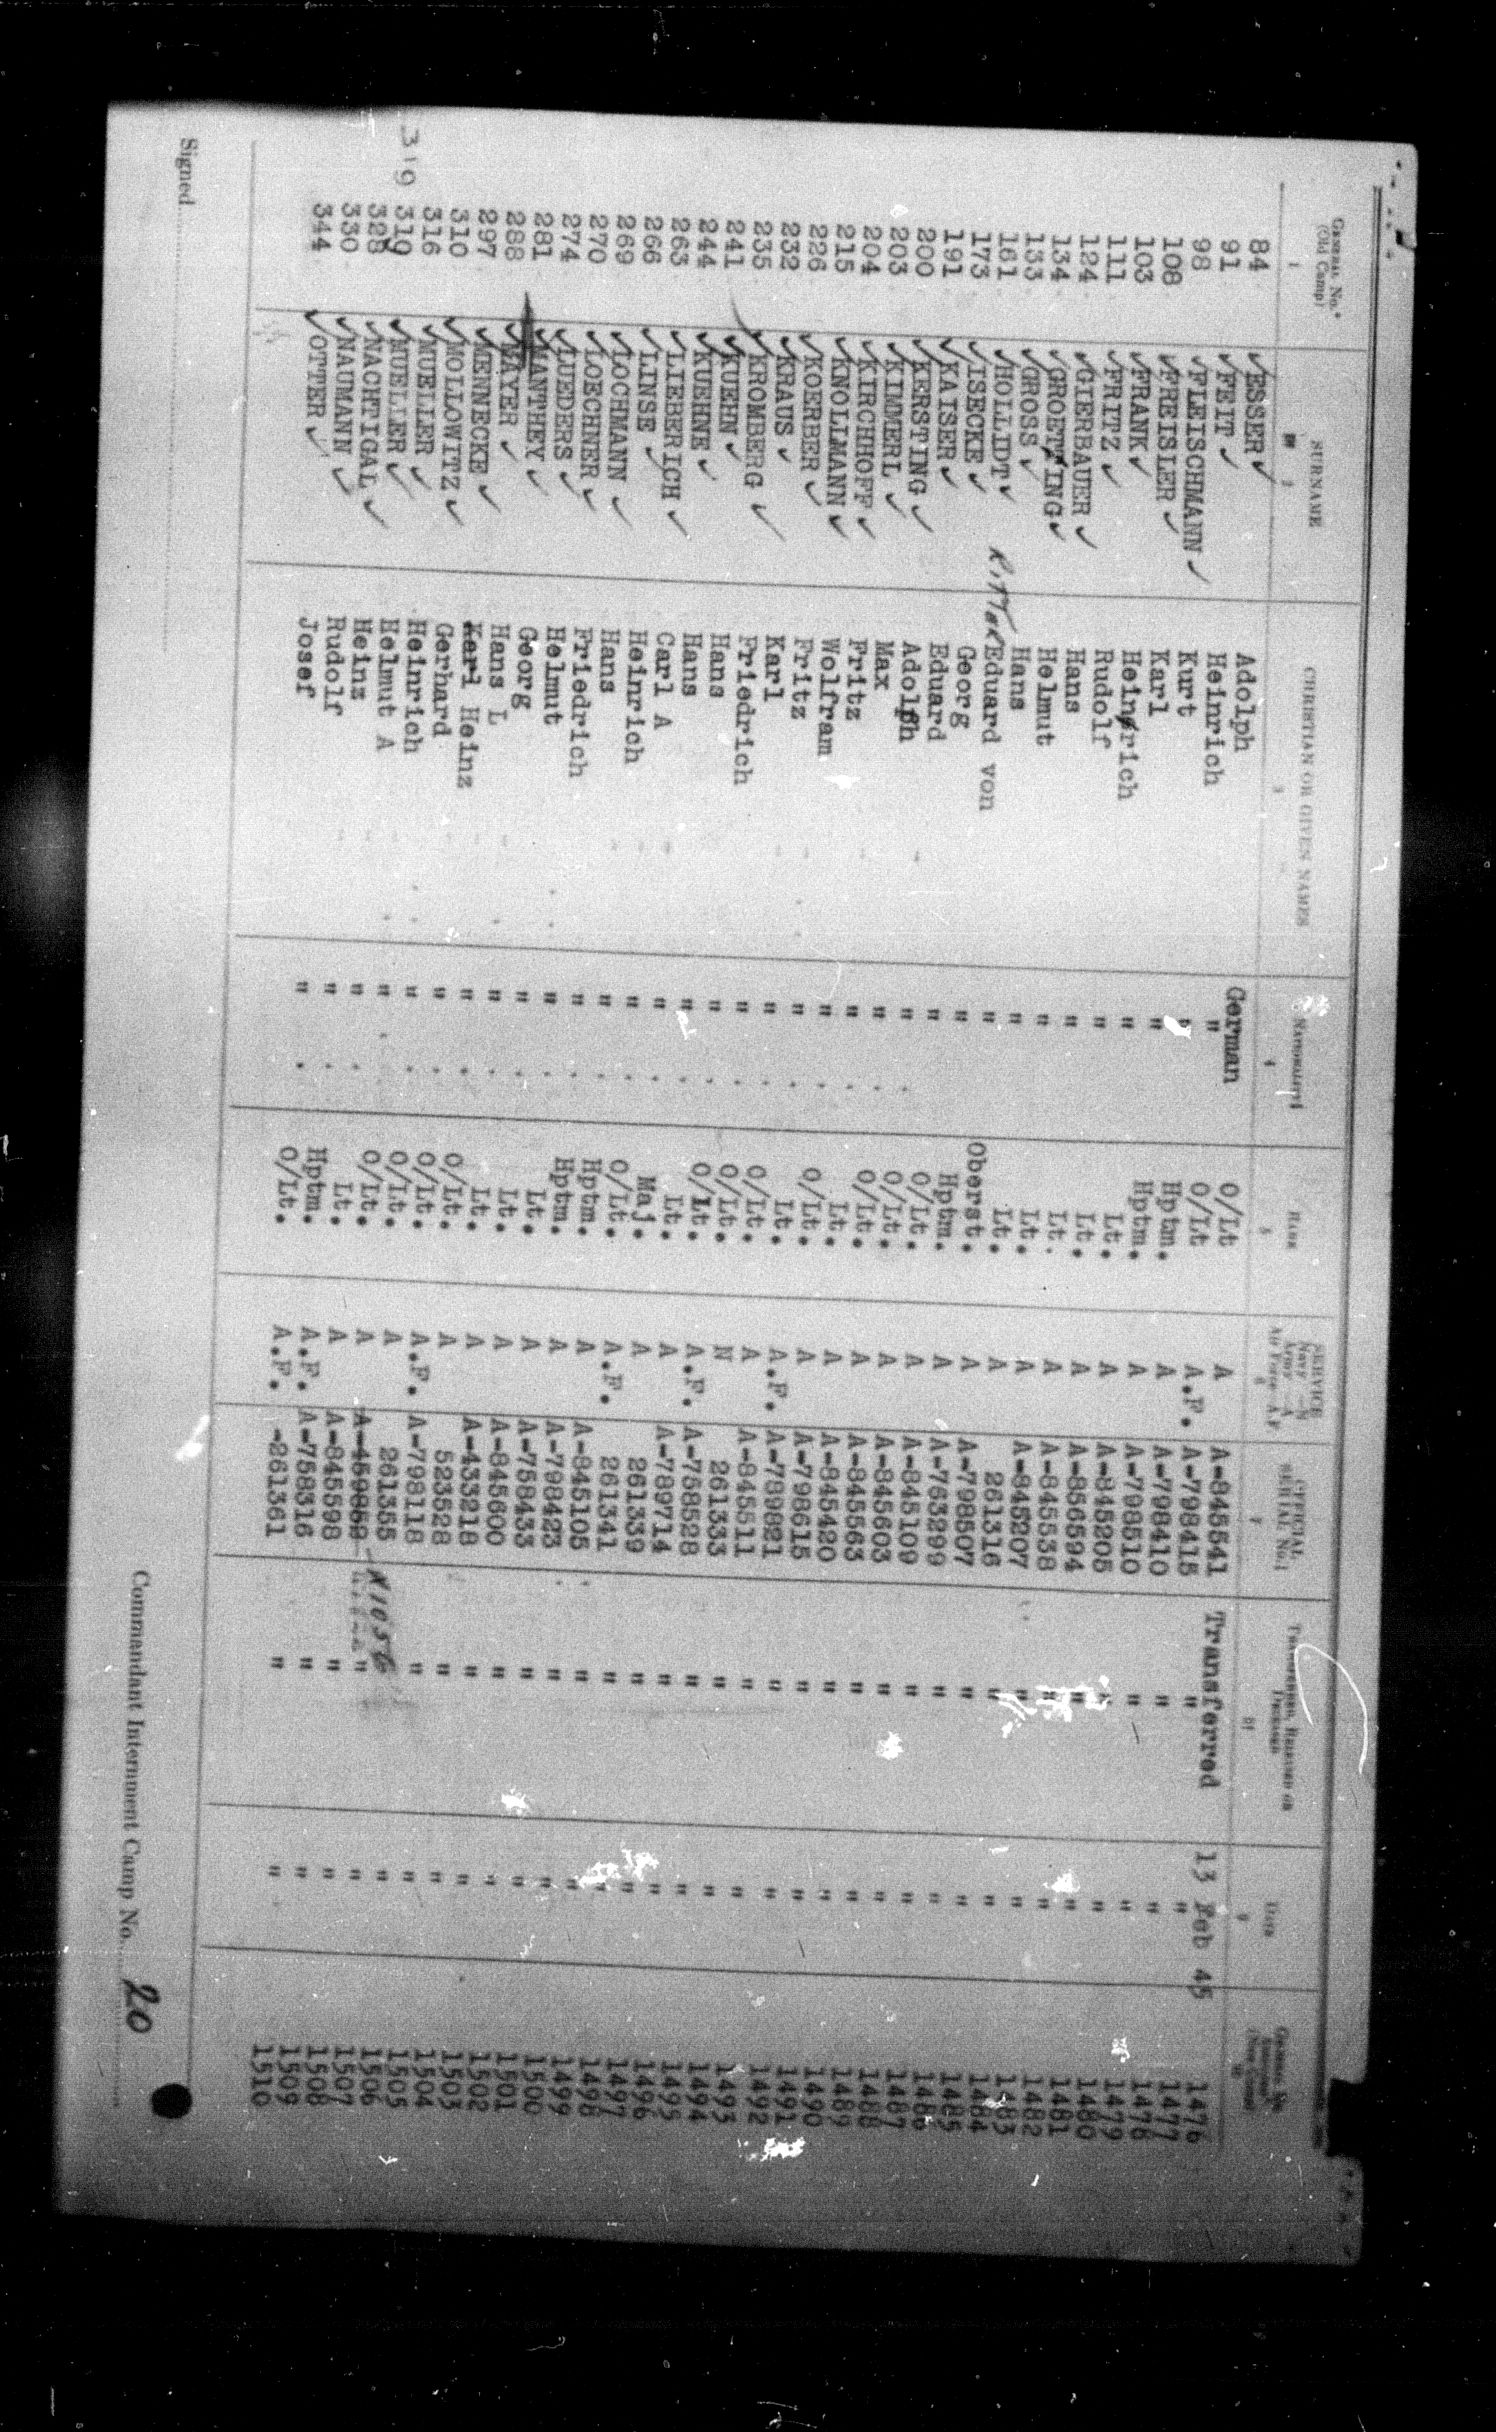 GENERAL No.* (Old Camp) SURNAME CHRISTIAN OR GIVEN NAMES NATIONALITY RANK SERVICE Navy —N Army —A Air Force—A F OFFICIAL SERIAL No. TRANSFERRED, RELEASED OR DECEASED DATE
84 ESSER Adolph German O/Lt A A-845541 Transferred 13 Feb 45 1476
91 FEIT Heinrich " O/Lt A.F. A-798415 " " 1477
98 FLEISCHMANN Kurt " Hptm. A A-798410 " " 1478
108 FREISLER Karl " Hptm. A A-798510 " " 1479
103 FRANK Heinrich " Lt. A A-845205 " " 1480
111 FRITZ Rudolf " Lt. A A-856594 " " 1481
124 GIERBAUER Hans " Lt. A A-845538 " " 1482
134 GROETING Helmut " Lt. A A-845207 " " 1483
133 GROSS Hans " Lt. A 261316 " " 1484
161 HOLLIDT Ritter Eduard von " Oberst. A A-798507 " " 1485
173 ISECKE Georg " Hptm. A A-763299 " " 1486
191 KAISER Eduard " O/Lt. A A-845109 " " 1487
200 KERSTING Adolph " O/Lt. A A-845603 " " 1488
203 KIMMERL Max " O/Lt. A A-845563 " " 1489
204 KIRCHHOFF Fritz " Lt. A A-845420 " " 1490
215 KNOLLMANN Wolfram " O/Lt. A A-798615 " " 1491
226 KOERBER Fritz " Lt. A.F. A-789821 " " 1492
232 KRAUS Karl " O/Lt. A A-845511 " " 1493
235 KROMBERG Friedrich " O/Lt. N 261333 " " 1494
241 KUEHN Hans " O/Lt. A.F. A-758528 " " 1495
244 KUEHNE Hans " Lt. A A-789714 " " 1496
263 LIEBERICH Carl A " Maj. A 261339 " " 1497
266 LINSE Heinrich " O/Lt. A.F. 261341 " " 1498
269 LOCHMANN Hans " Hptm. A A-845105 " " 1499
270 LOECHNER Friedrich " Hptm. A A-798423 " " 1500
274 LUEDERS Helmut " Lt. A A-758433 " " 1501
281 MANTHEY Georg " Lt. A A-845600 " " 1502
288 MAYER Hans L " Lt. A A-433218 " " 1503
297 MENNECKE Karl Heinz " O/Lt. A 523528 " " 1504
310 MOLLOWITZ Gerhard " O/Lt. A.F. A-798118 " " 1505
316 MUELLER Heinrich " O/Lt. A 261355 " " 1506
319 319 MUELLER Helmut A " O/Lt. A A-459859 " " 1507
328 NACHTIGAL Heinz " Lt. A A-845598 " " 1508
330 NAUMANN Rudolf " Hptm. A.F. A-758316 " " 1509
344 OTTER Josef " O/Lt. A.F. -261361 " " 1510
Signed
Commandant Internment Camp No. 20